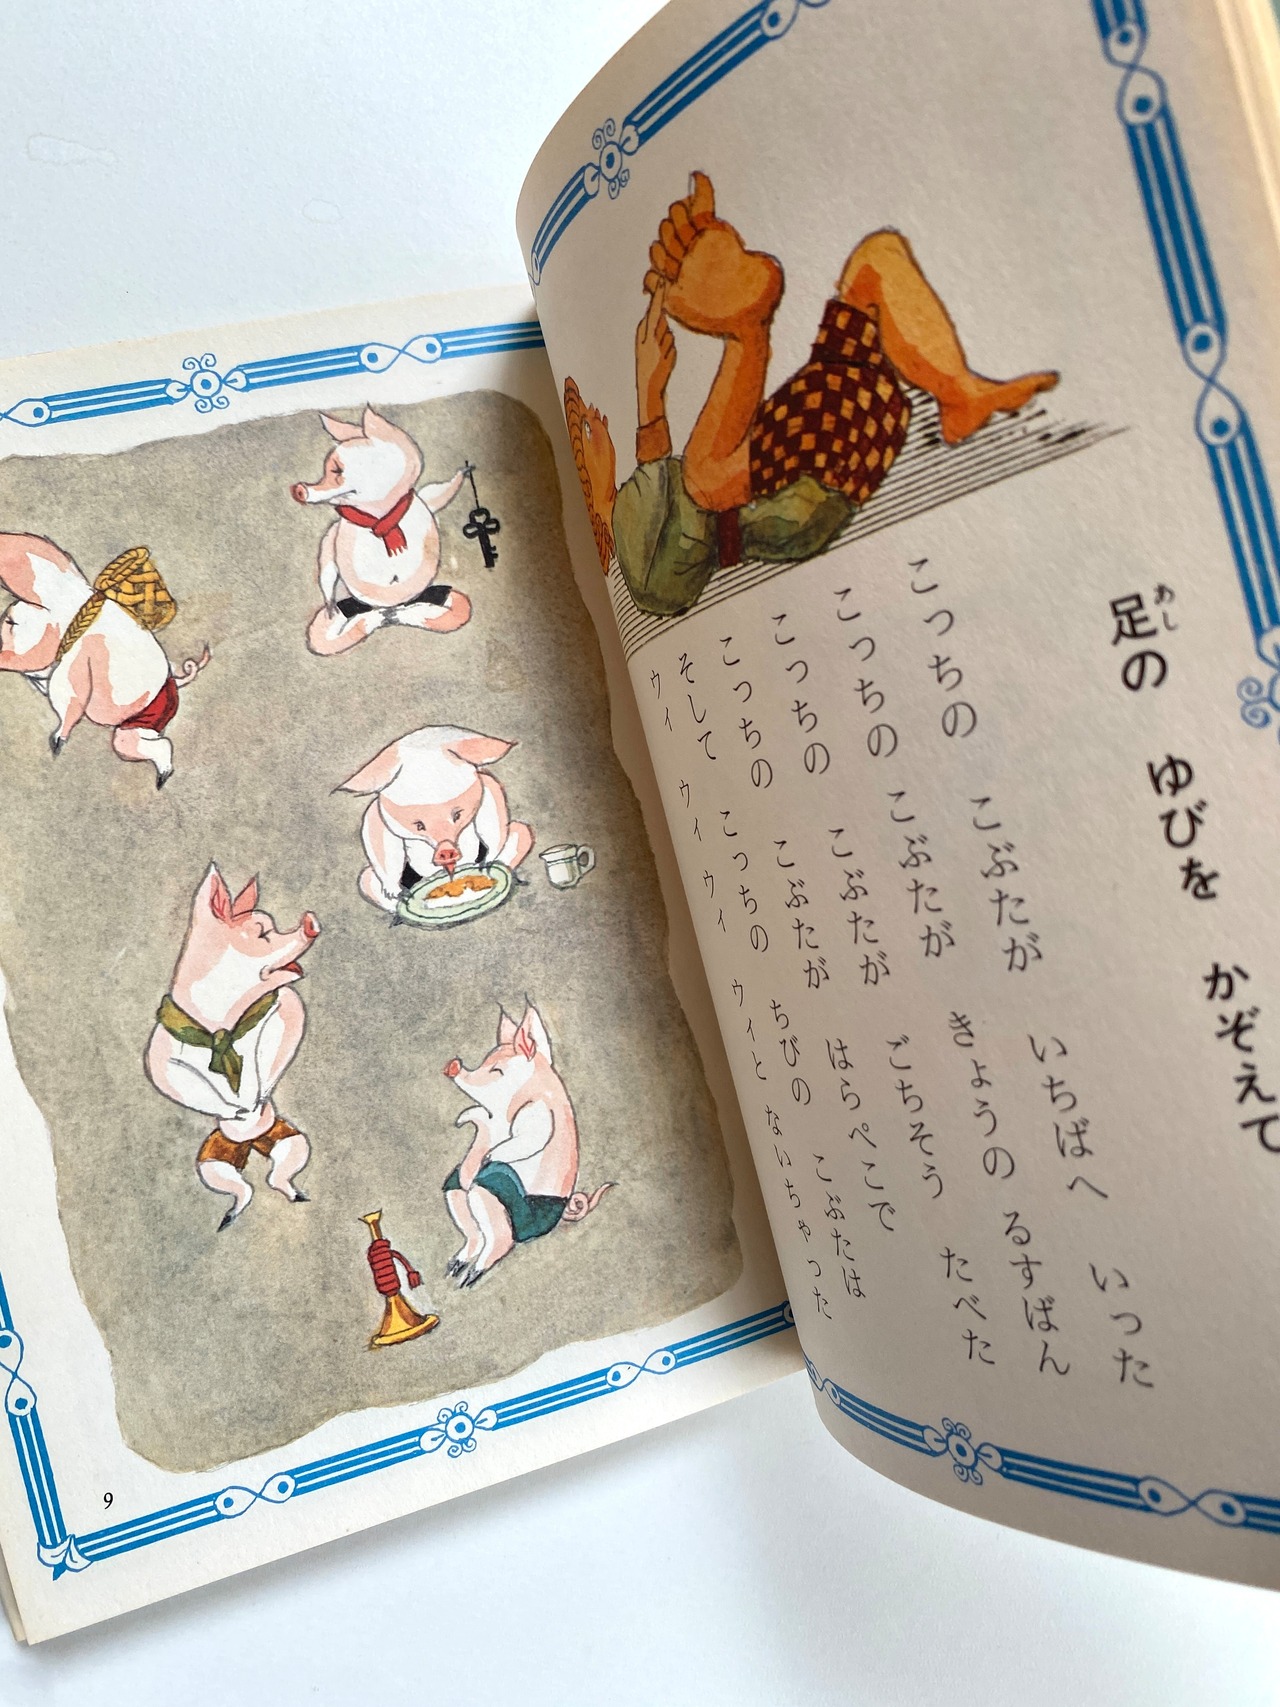 足の ゆびを かぞえて
あし
こっちの こぶたが いちばへ いった
こっちの こぶたが きょうの るすばん
こっちの こぶたが ごちそう たべた
こっちの こぶたが はらぺこで
そして こっちの ちびの こぶたは
ウィ ウィ ウィ ウィと ないちゃった
9